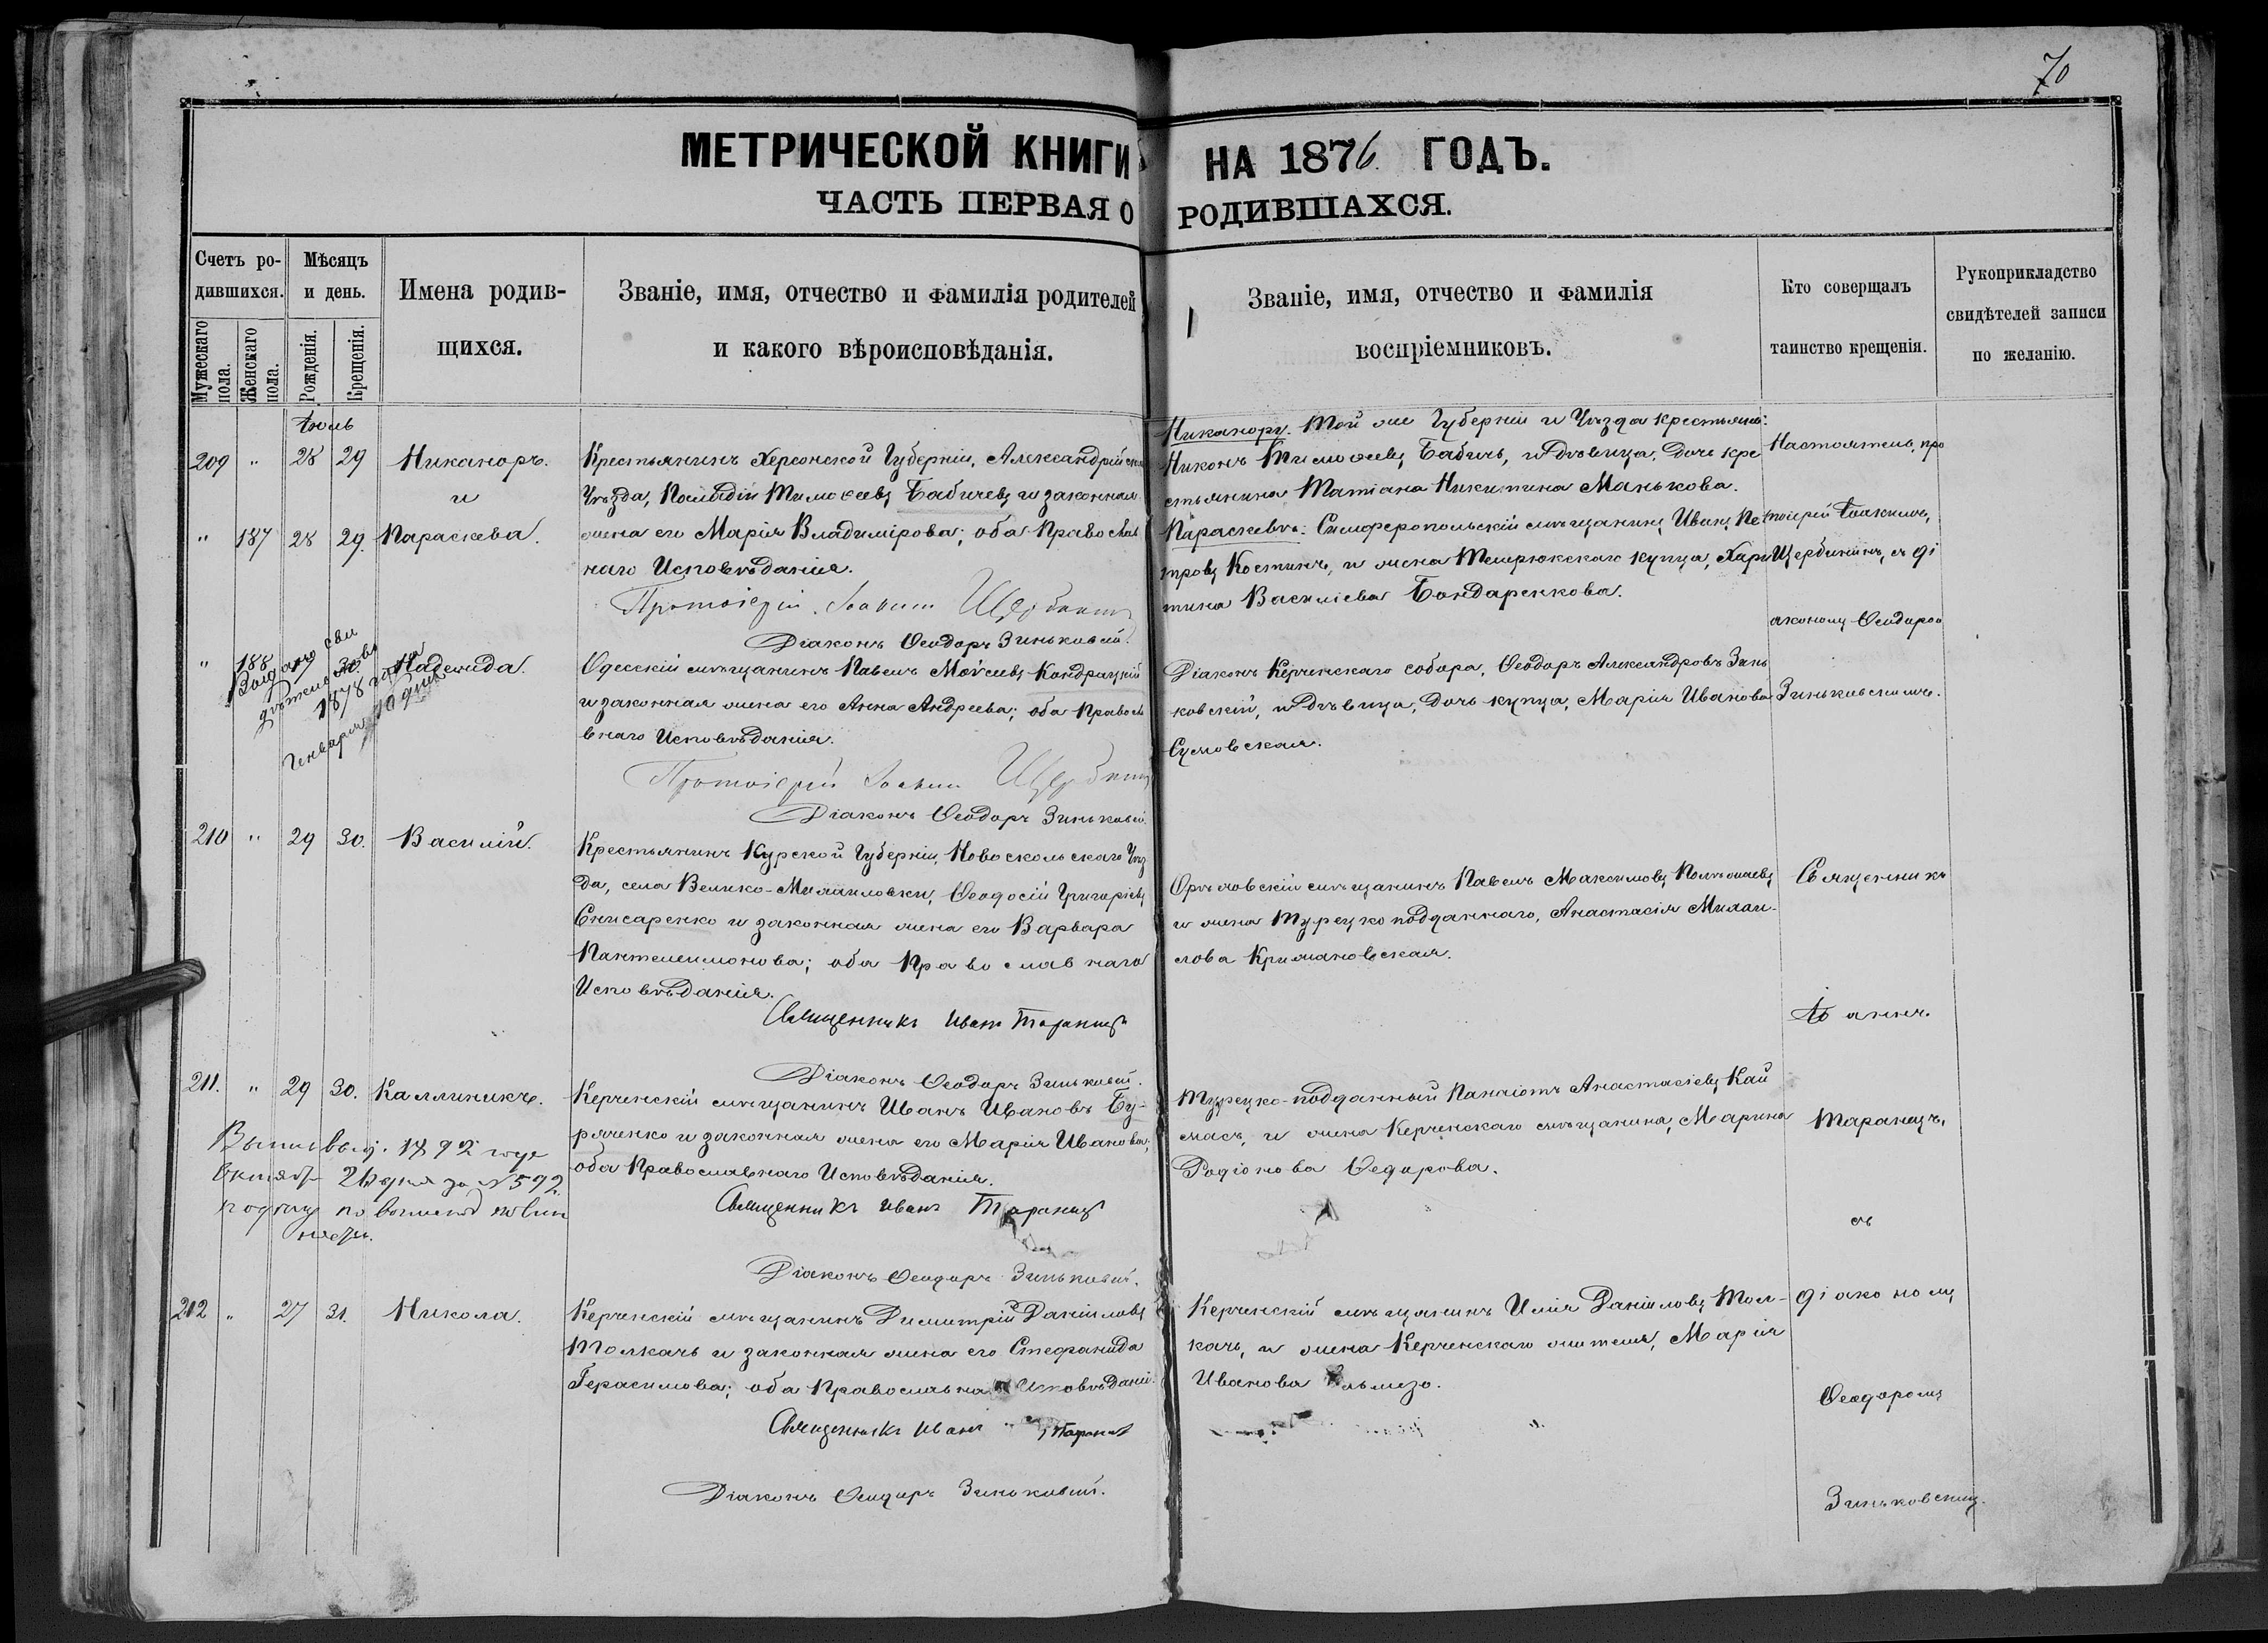 70
МЕТРИЧЕСКОЙ КНИГИ НА 1876 ГОДЪ.
ЧАСТЬ ПЕРВАЯ О РОДИВШАХСЯ.
Счетъ ро-
дившихся.
Мужескаго
пола.
Женскаго
пола.
Мѣсяцъ
и день.
Рожденія.
Крещенія.
Имена родив-
щихся.
Званіе, имя, отчество и фамилія родителей
и какого вѣроисповѣданія.
Званіе, имя, отчество и фамилія
воспріемниковъ.
Кто соверщалъ
таинство крещенія.
Рукоприкладство
свидѣтелей записи
по желанію.
Іюль
209 " 28 29 Никаноръ.
и
" 187 28 29. Параскева.
Крестьянинъ Херсонской Губерніи, Александрійска
Уѣзда, Тимоѳеевъ Бабичевъ и законная
жена его Марія Владимірова; оба Православ
наго Исповѣданія.
Протоіерей Іоакимъ Щербининъ
Діаконъ Ѳеодоръ Зиньковскій.
Никанору. Той же Губерніи и Уѣзда крестьянинъ
Никонъ Тимоѳеевъ Бабичъ, и дѣвица, дочь кре
стьянина Татіана Никитина Манькова.
Параскевѣ: Симферопольскій мѣщанинъ Иванъ Пе
тровъ Костинъ, и жена Темрюкскаго купца, Хари
тина Василіева Бондаренкова.
Настоятель, про
тоіерей Іоакимъ,
Щербининъ, съ ді
акономъ Ѳеодоро
" 188 30 Надежда.
Выдано сви
дѣтельство
1878 года
Генваря 10 дня
Одесскій мѣщанинъ Павелъ Моѵсеевъ Кондрацкій
и законная жена его Анна Андреева; оба Правосла
внаго Исповѣданія.
Протоіерей Іоакимъ Щербининъ
Діаконъ Ѳеодоръ Зиньковскій.
Діаконъ Керченскаго собора, Ѳеодоръ Александровъ Зинь
ковскій, и дѣвица, дочь купца, Марія Иванова
Сумовская.
Зиньковскимъ.
210 " 29 30. Василій.
Крестьянинъ Курской Губерніи, Новоскольскаго Уѣз
да, села Велико-Михаиловки, Ѳеодосій Григоріевъ
Снисаренко и законная жена его Варвара
Пантелеимонова; оба Православнаго
Исповѣданія.
Священникъ Иванъ Таранецъ
Діаконъ Ѳеодоръ Зиньковскій.
Орловскій мѣщанинъ Павелъ Максимовъ
и жена Турецкоподданнаго, Анастасія Михаи-
лова Крижановская.
Священникъ
Іоаннъ.
211. " 29 30. Каллиникъ.
1892 года
Октября 21 дня за № 592
по воинской повин
ности.
Керченскій мѣщанинъ Иванъ Ивановъ Бу-
ряченко и законная жена его Марія Иванова,
оба Православнаго Исповѣданія.
Священникъ Иванъ Таранецъ
Діаконъ Ѳеодоръ Зиньковскій.
Турецко-подданный Панаіотъ Анастасіевъ Кай
масъ, и жена Керченскаго мѣщанина, Марина
Родіонова Ѳедорова.
Таранецъ,
съ
212 " 27 31. Никола.
Керченскій мѣщанинъ Димитрій Даніиловъ
Толкачъ и законная жена его Стефанида
Герасимова; оба Православна Исповѣданія.
Священникъ Иванъ Таранецъ
Діаконъ Ѳеодоръ Зиньковскій.
Керченскій мѣщанинъ Илія Даніиловъ Тол-
качъ, и жена Керченскаго жителя, Марія
Иванова
діакономъ
Ѳеодоромъ
Зиньковскимъ.